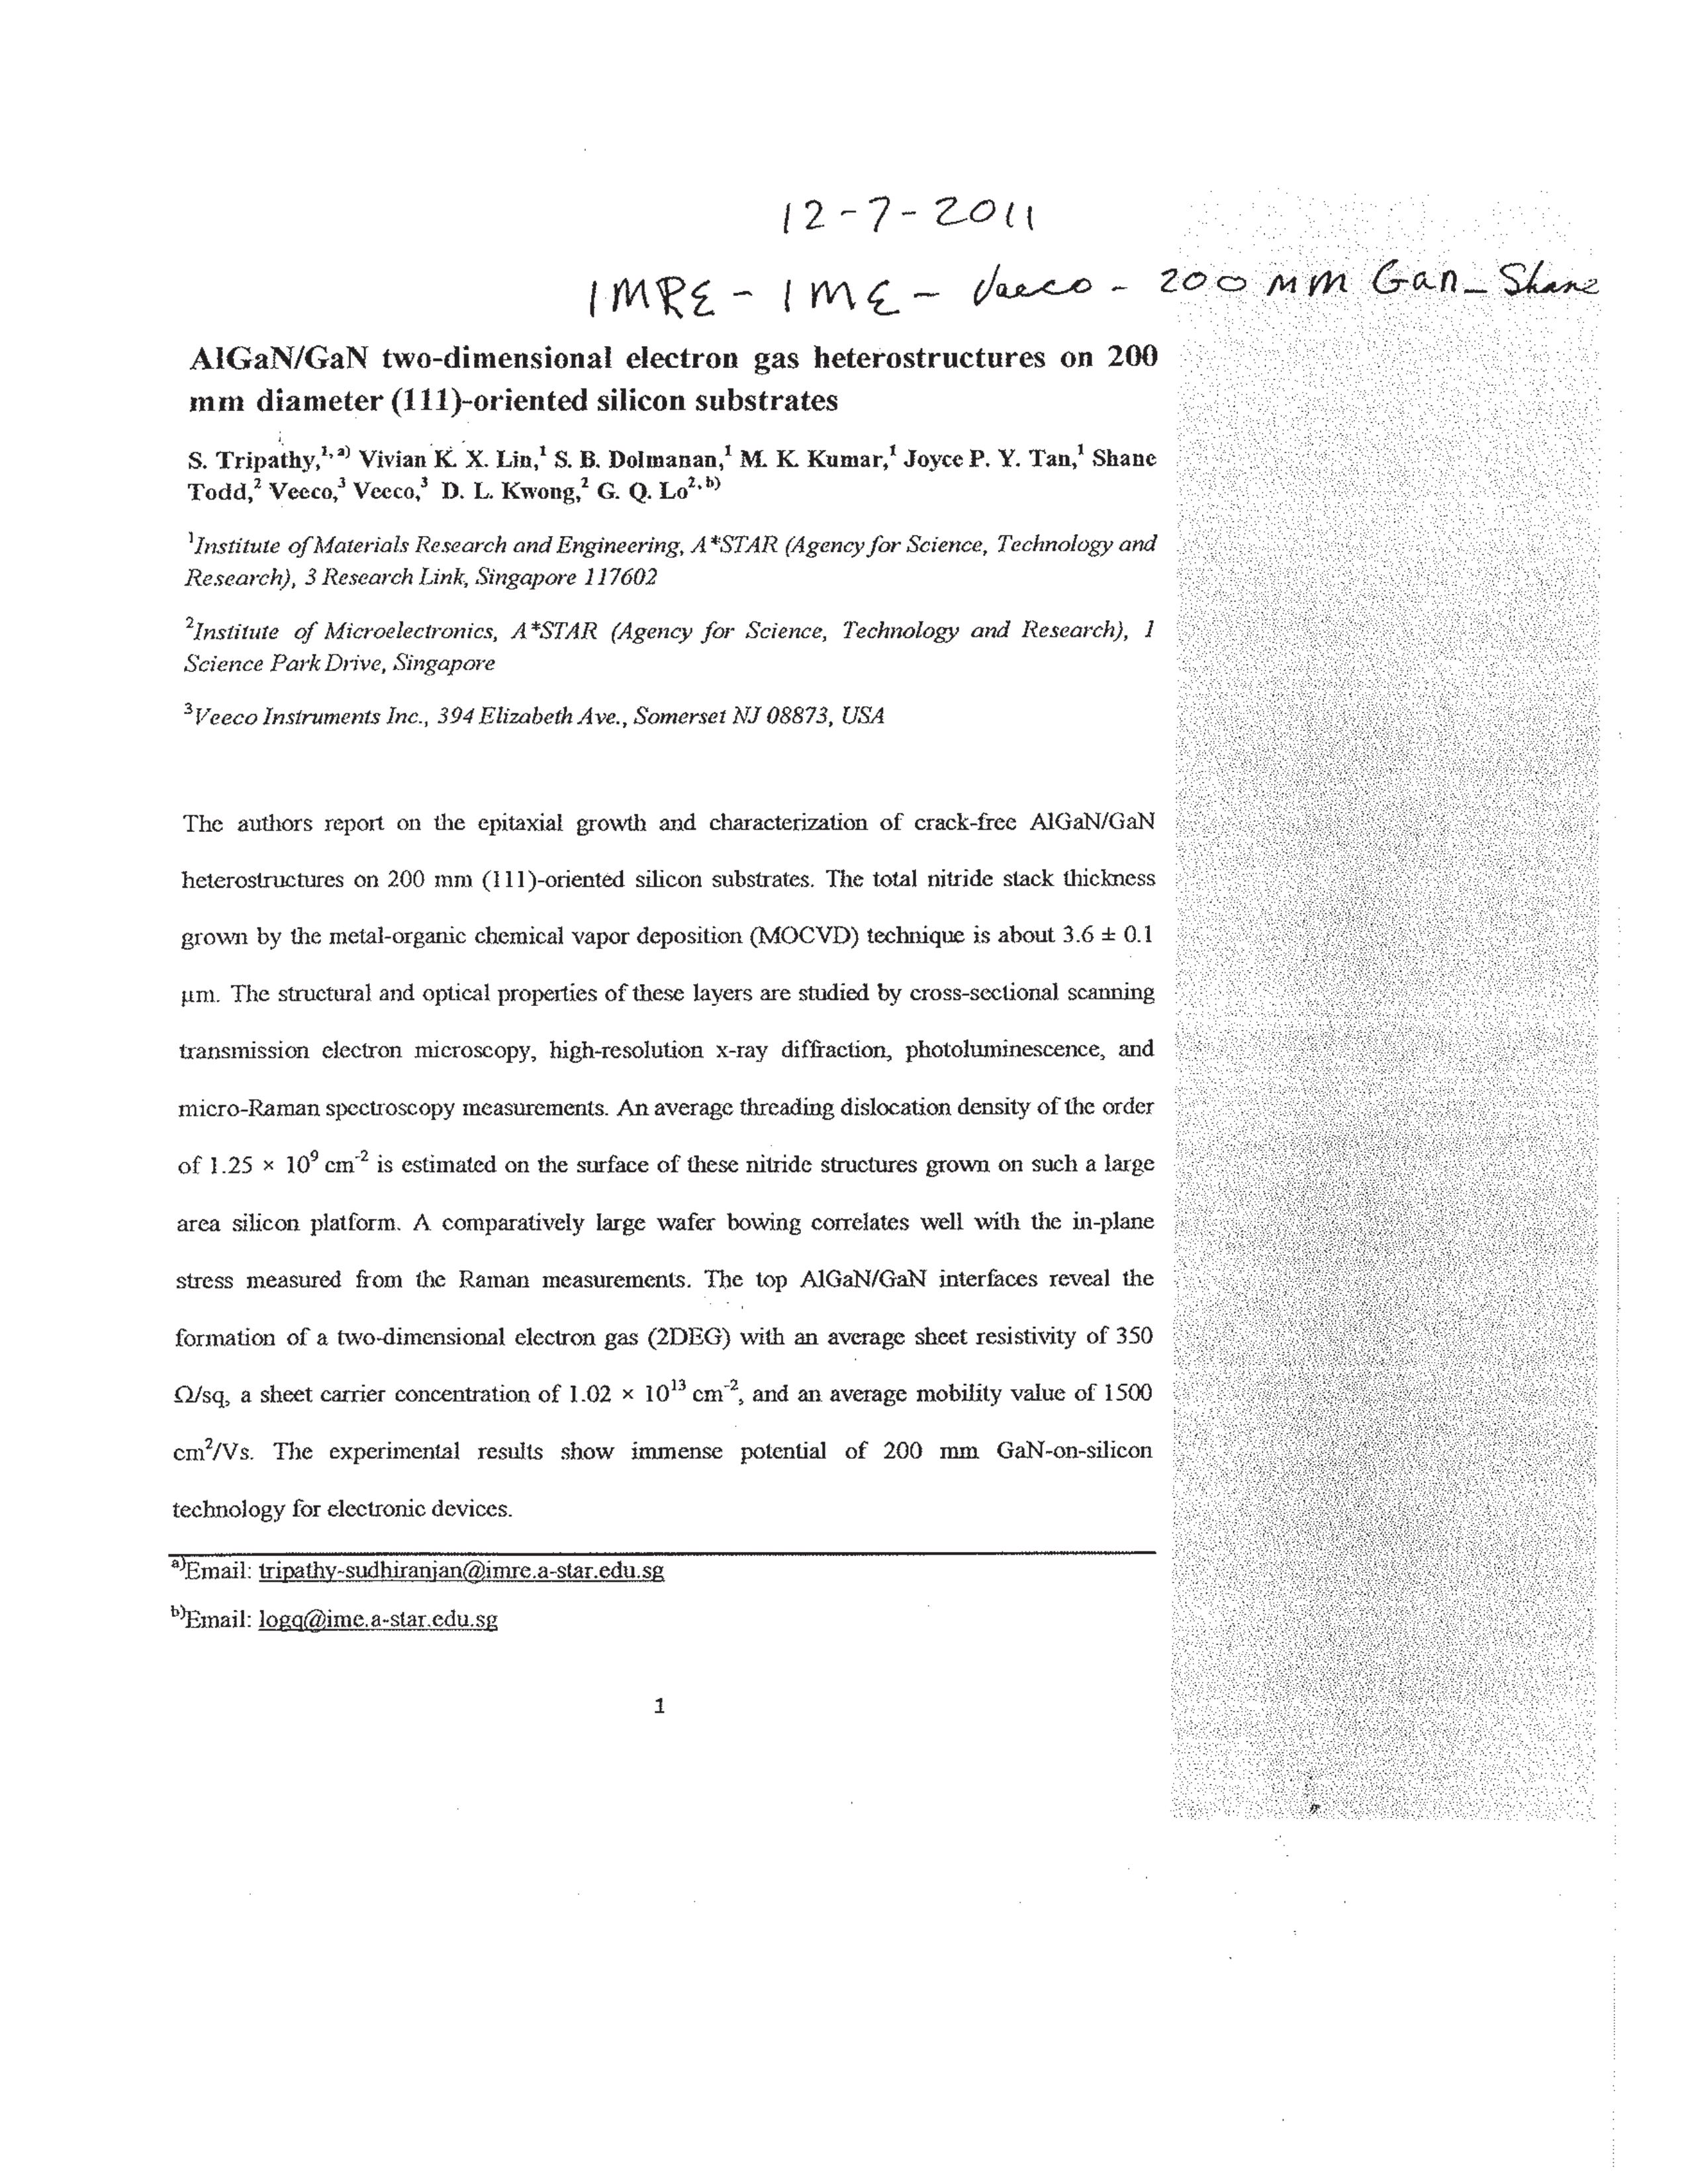 12-7-2011
IMRE - IME - Veeco - 200 mm Gan_Shane
AlGaN/GaN two-dimensional electron gas heterostructures on 200
mm diameter (111)-oriented silicon substrates
S. Tripathy,¹˒ ᵃ⁾ Vivian K. X. Lin,¹ S. B. Dolmanan,¹ M. K. Kumar,¹ Joyce P. Y. Tan,¹ Shane
Todd,² Veeco,³ Veeco,³ D. L. Kwong,² G. Q. Lo²˒ ᵇ⁾
¹Institute of Materials Research and Engineering, A*STAR (Agency for Science, Technology and
Research), 3 Research Link, Singapore 117602
²Institute of Microelectronics, A*STAR (Agency for Science, Technology and Research), 1
Science Park Drive, Singapore
³Veeco Instruments Inc., 394 Elizabeth Ave., Somerset NJ 08873, USA
The authors report on the epitaxial growth and characterization of crack-free AlGaN/GaN
heterostructures on 200 mm (111)-oriented silicon substrates. The total nitride stack thickness
grown by the metal-organic chemical vapor deposition (MOCVD) technique is about 3.6 ± 0.1
μm. The structural and optical properties of these layers are studied by cross-sectional scanning
transmission electron microscopy, high-resolution x-ray diffraction, photoluminescence, and
micro-Raman spectroscopy measurements. An average threading dislocation density of the order
of 1.25 × 10⁹ cm⁻² is estimated on the surface of these nitride structures grown on such a large
area silicon platform. A comparatively large wafer bowing correlates well with the in-plane
stress measured from the Raman measurements. The top AlGaN/GaN interfaces reveal the
formation of a two-dimensional electron gas (2DEG) with an average sheet resistivity of 350
Ω/sq, a sheet carrier concentration of 1.02 × 10¹³ cm⁻², and an average mobility value of 1500
cm²/Vs. The experimental results show immense potential of 200 mm GaN-on-silicon
technology for electronic devices.
ᵃ⁾Email: tripathy-sudhiranjan@imre.a-star.edu.sg
ᵇ⁾Email: logq@ime.a-star.edu.sg
1